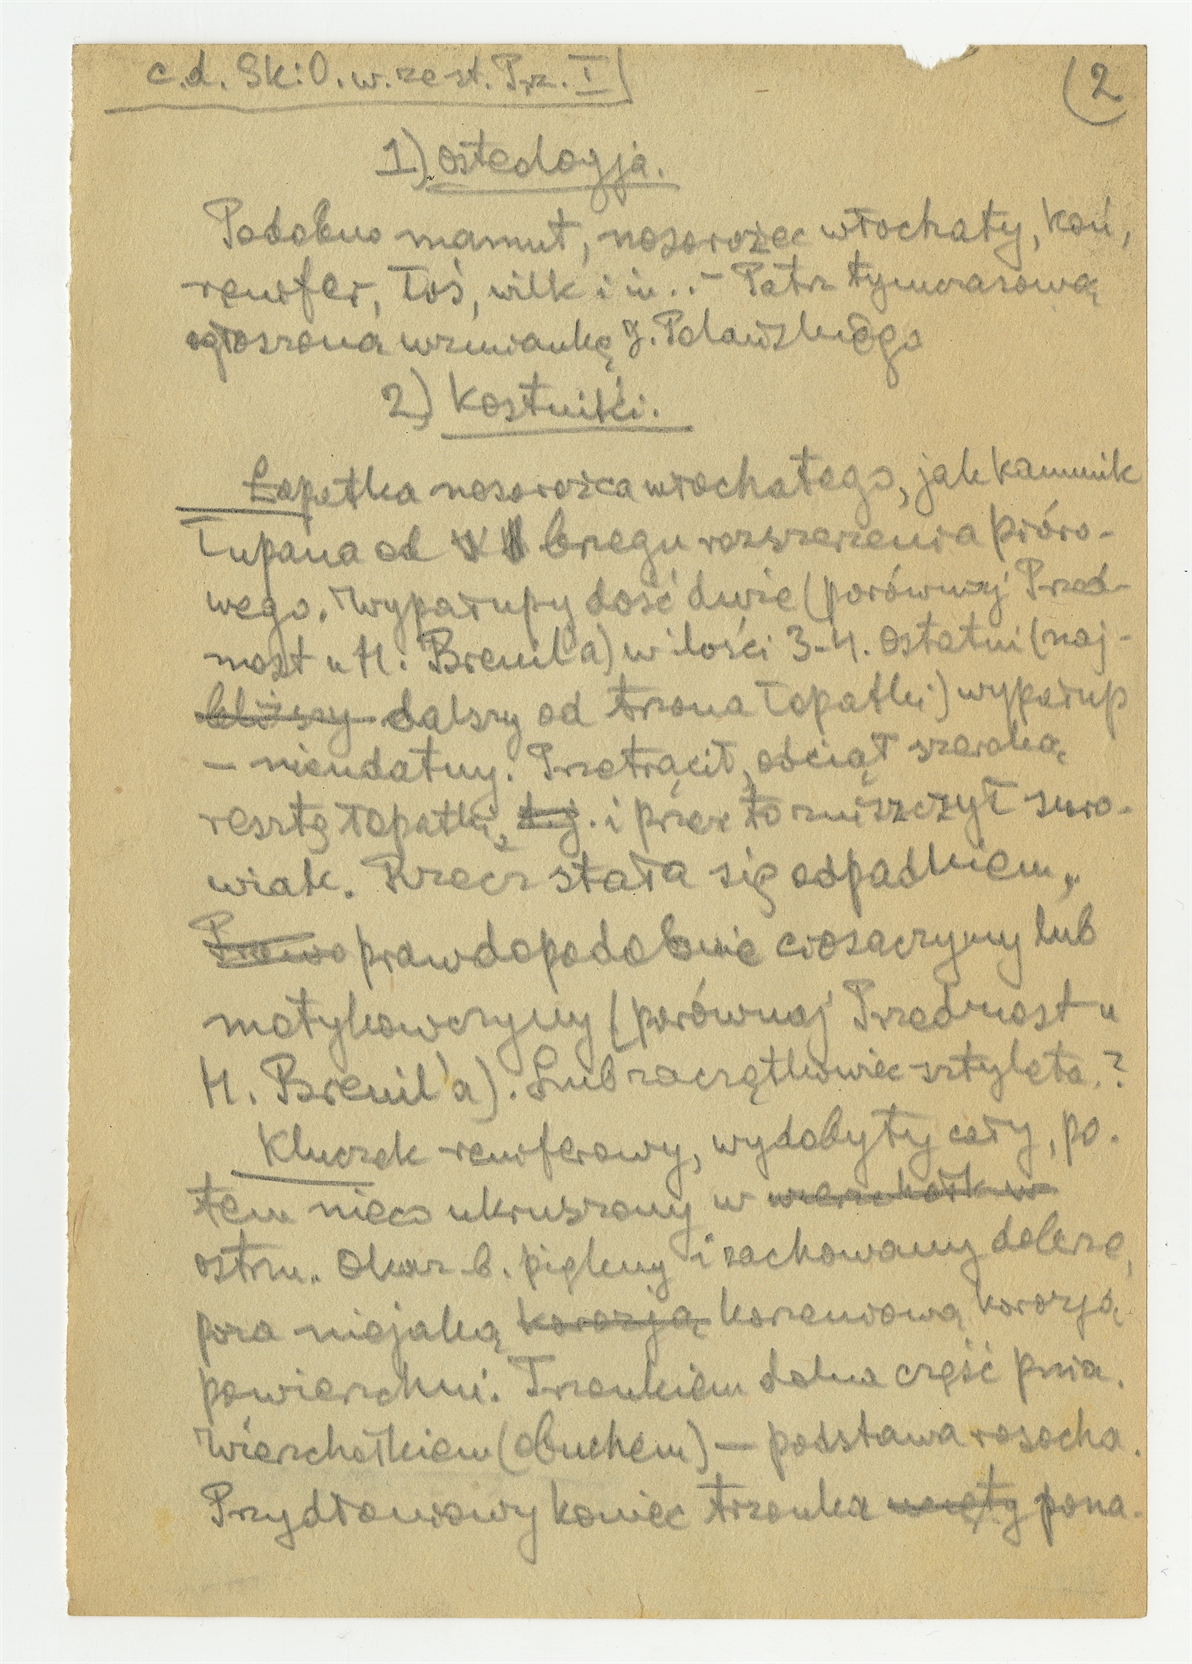 c.d. Sk: O. w. zest. Prz. I)
(2
1) osteologja.
Podobno mamut, nosorożec włochaty, koń,
renifer, łoś, wilk i in.. – Patrz tymczasową
ogłoszoną wzmiankę J. Polańskiego
2) Kostniki.
Łopatka nosorożca włochatego, jak kamiennik
łupana od brzegu rozszerzenia pióro-
wego. Wypałupy dość duże (porównaj Przed-
most u H. Breuil'a) w ilości 3-4. Ostatni (naj-
bliższy dalszy od trzona łopatki) wypałup
– nieudatny. Przetrącił, odciął szeroką
resztę łopatki, t.j. i przez to zniszczył suro-
wiak. Rzecz stała się odpadkiem,
prawdopodobnie ciosaczyny lub
motykowczyny (porównaj Przedmost u
H. Breuil'a). Lub zaczątkowiec sztyleta.?
Kluczek reniferowy, wydobyty cały, po-
tem nieco ukruszony w wierzchołku
ostrzu. Okaz b. piękny i zachowany dobrze,
poza niejaką korozją korzeniową korozją
powierzchni. Trzonkiem dolna część pnia.
Wierzchołkiem (obuchem) – podstawa rosocha.
Przydłoniowy koniec trzonka ucięty pona-